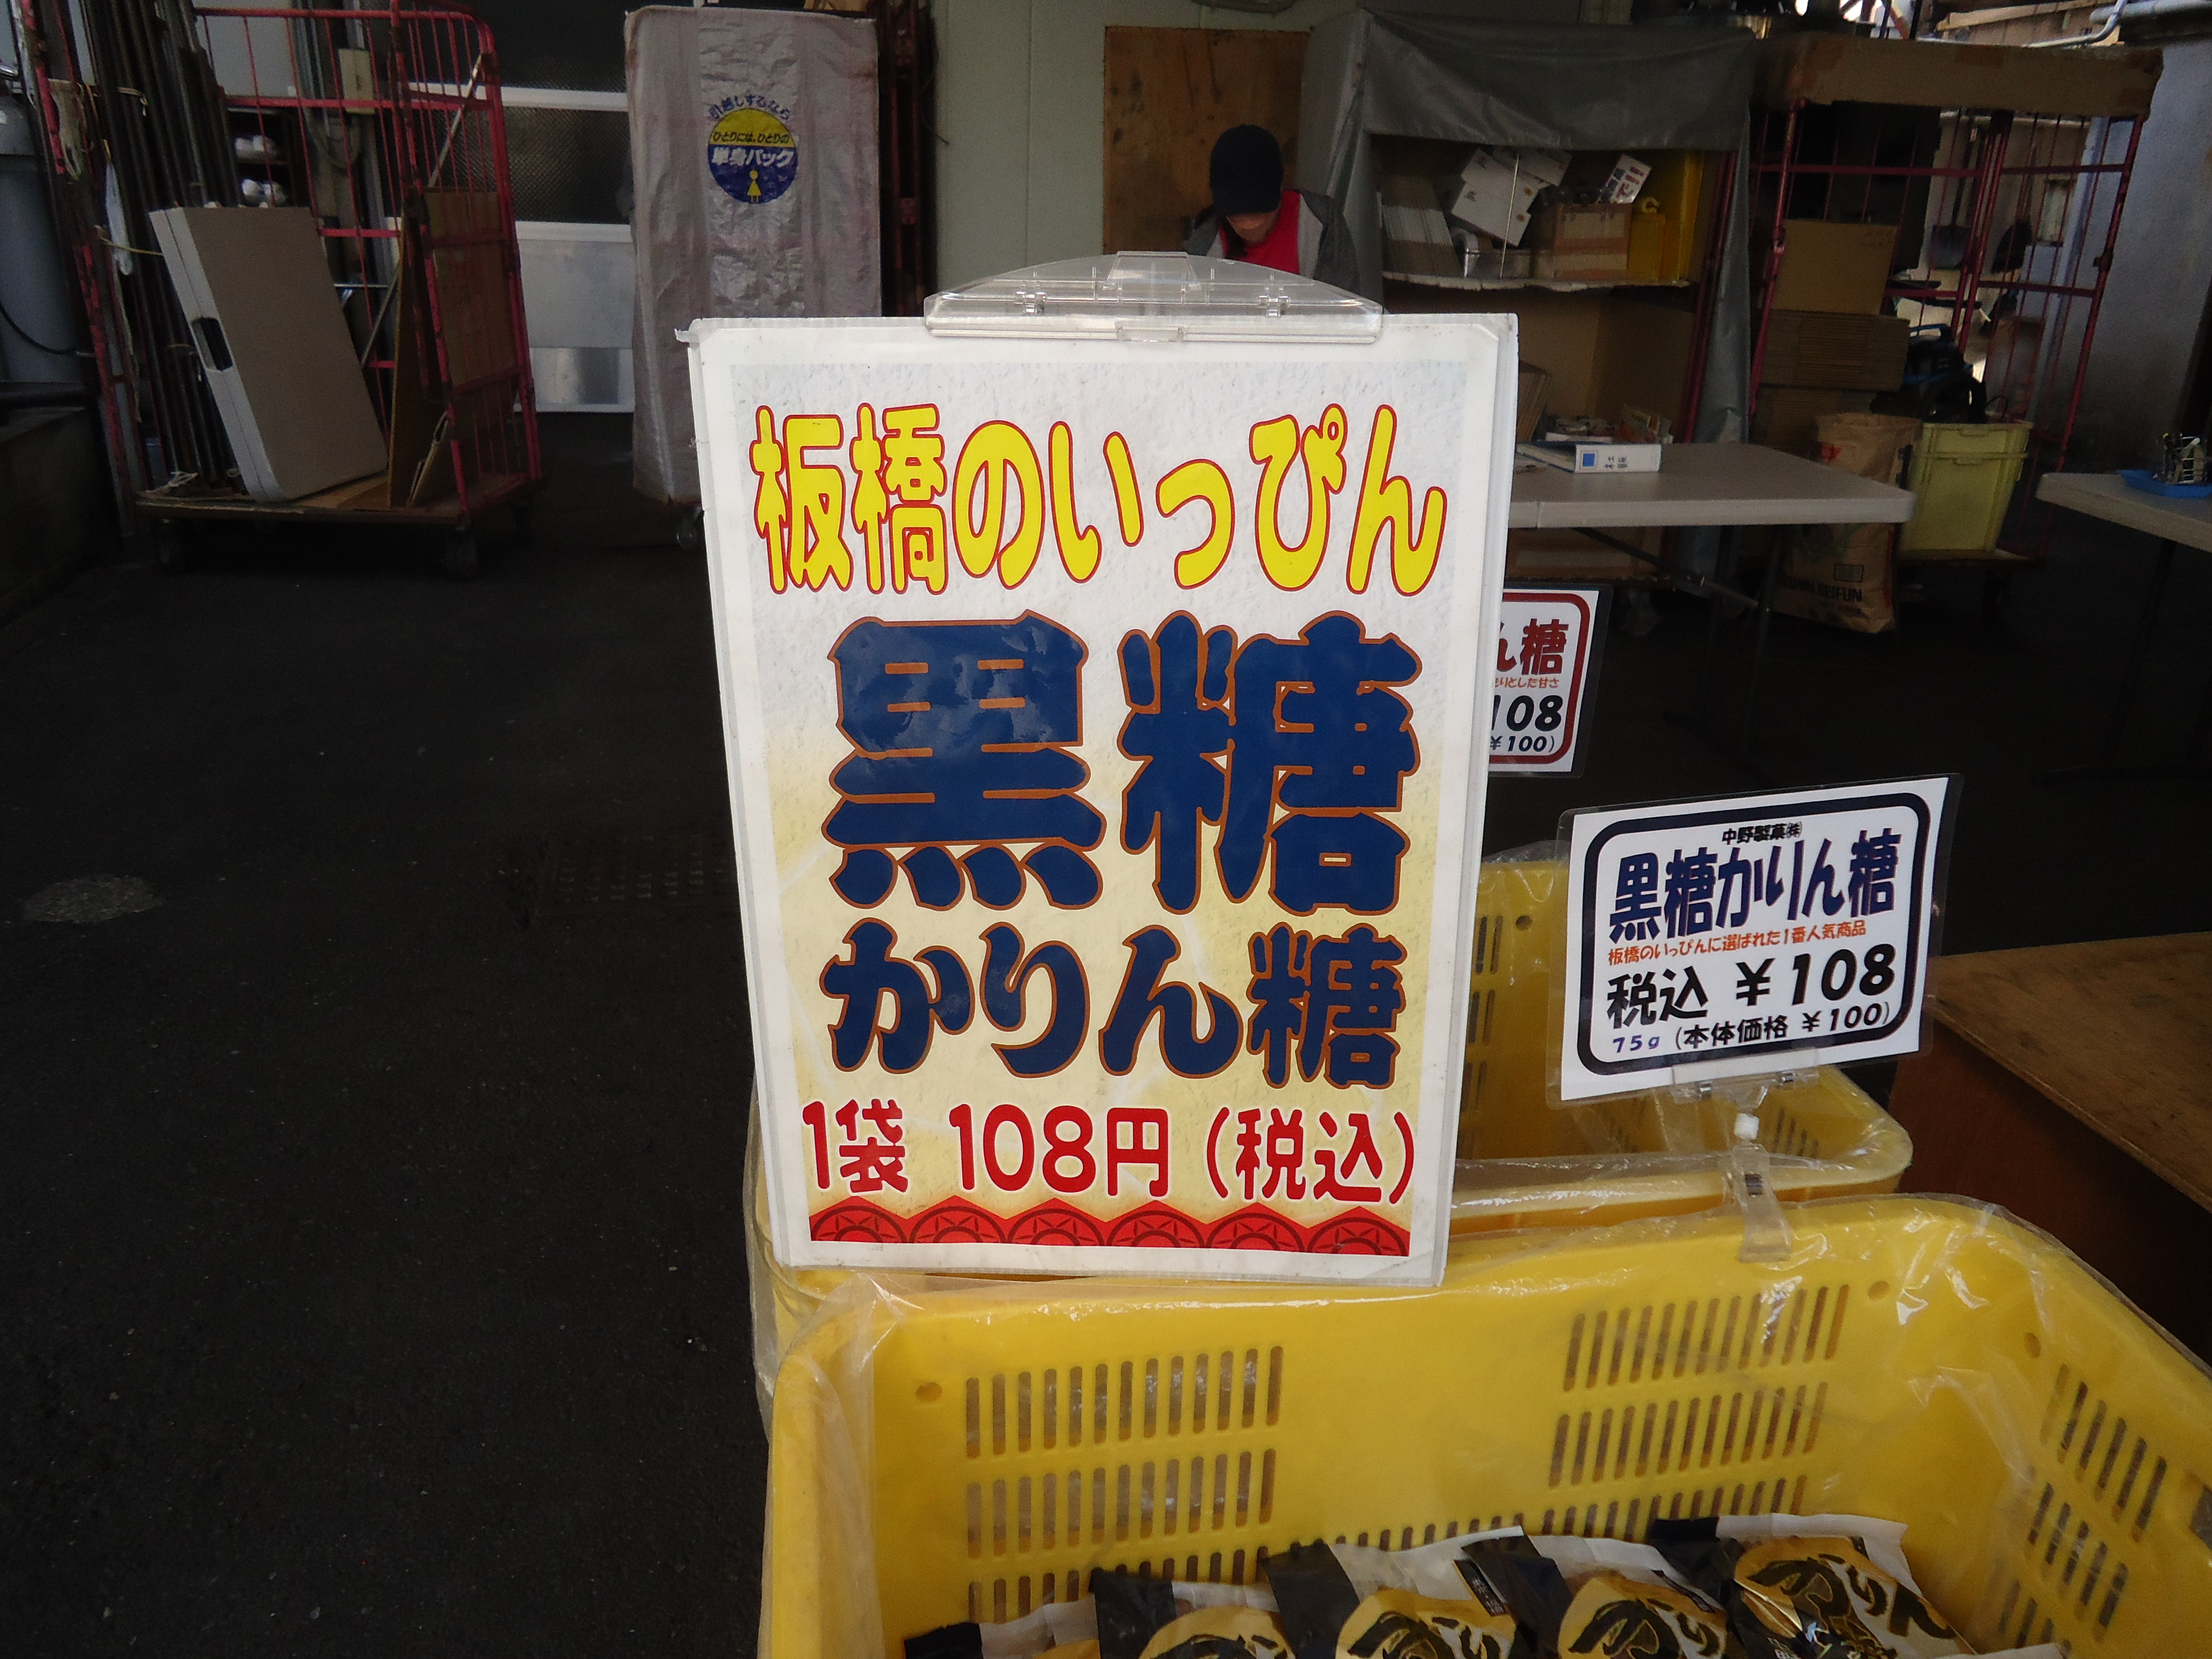 引越しするなら
ひとりには、ひとりの
単身パック
板橋のいっぴん
黒糖
かりん糖
1袋 108円(税込)
ん糖
りとした甘さ
108
¥100)
中野製菓㈱
黒糖かりん糖
板橋のいっぴんに選ばれた1番人気商品
税込 ¥108
75g (本体価格 ¥100)
かりん